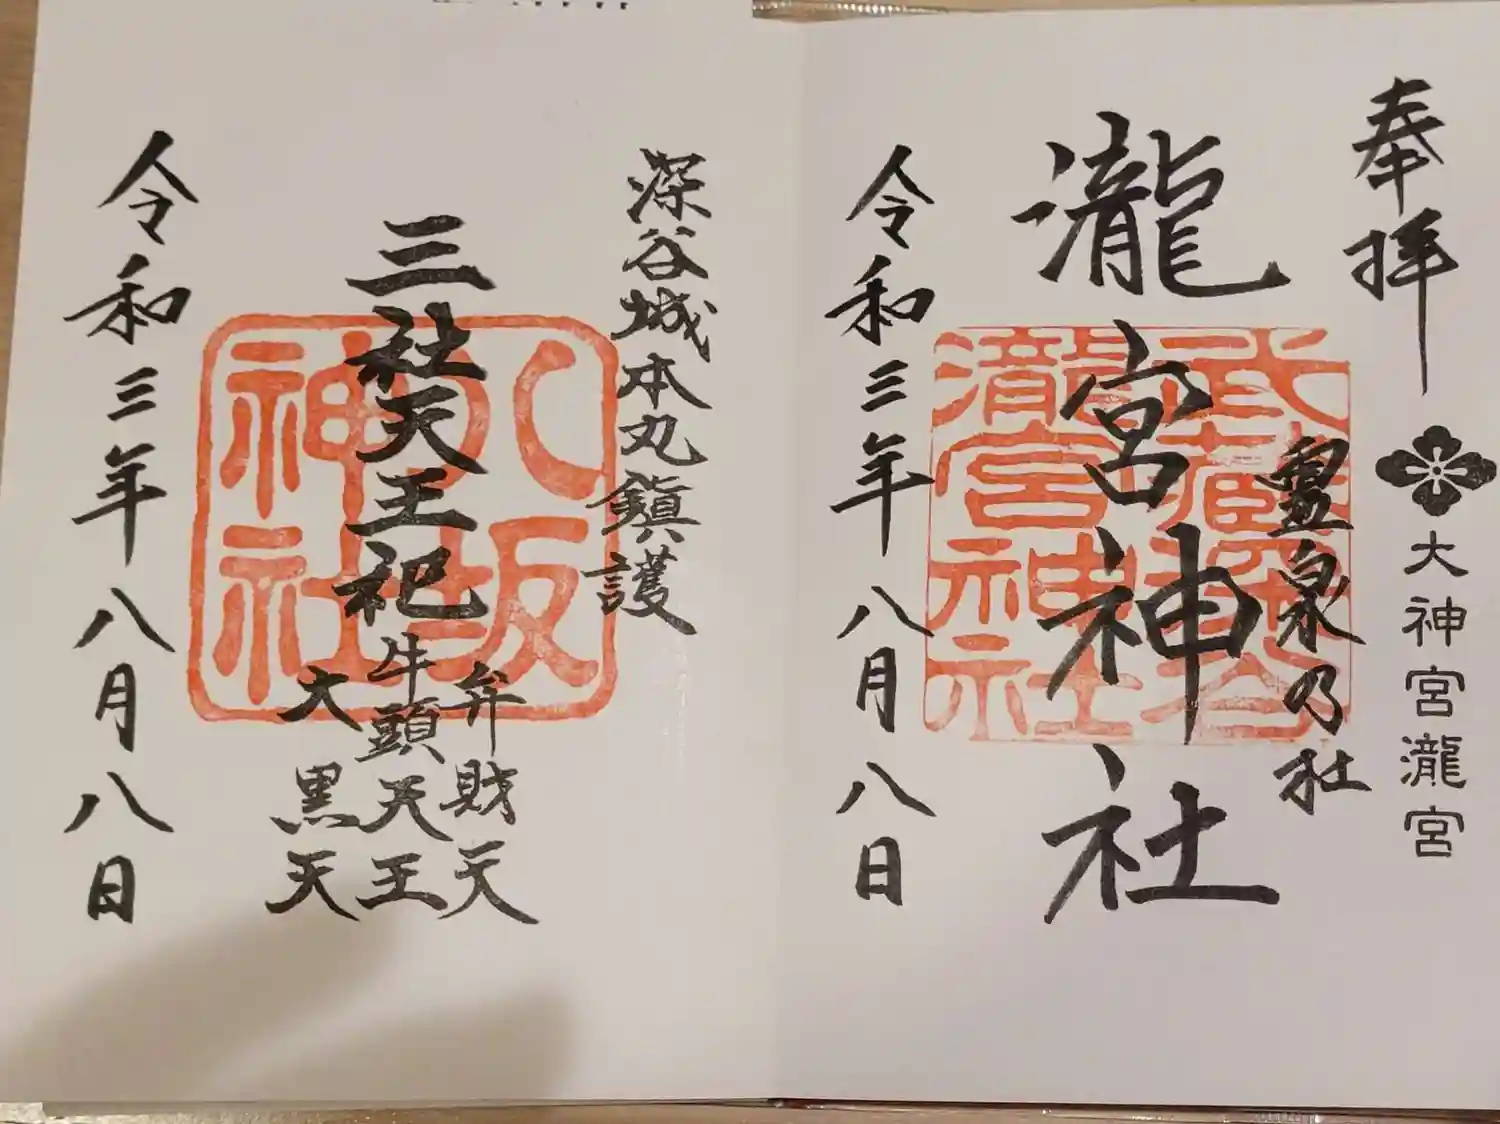 奉拝
大神宮瀧宮
靈泉乃社
瀧宮神社
武蔵深谷瀧宮神社
令和三年八月八日
深谷城本丸鎮護
三社天王祀
弁財天
牛頭天王
大黒天
八坂神社
令和三年八月八日